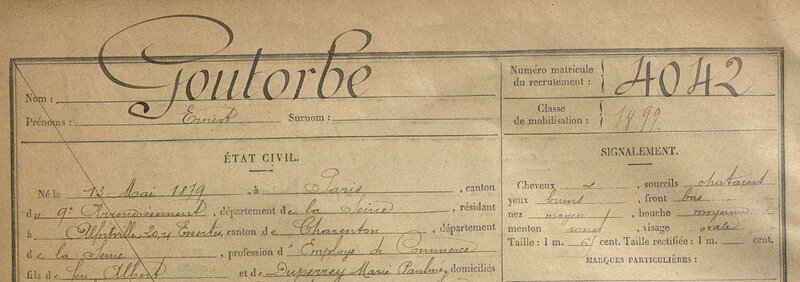 Goutorbe
Nom :
Prénoms : Ernest Surnom :
Numéro matricule
du recrutement : 4042
Classe
de mobilisation : 1899
ÉTAT CIVIL.
Né le 13 Mai 1879, à Paris, canton
du 9e Arrondissement, département de la Seine, résidant
à Alfortville 20 r, canton de Charenton, département
de la Seine, profession d'Employé de Commerce
fils de feu Albert et de Duperrey Marie Pauline, domiciliés
SIGNALEMENT.
Cheveux &, sourcils chatains
yeux bruns, front bas
nez moyen, bouche moyenne
menton rond, visage ovale
Taille : 1 m. cent. Taille rectifiée : 1 m. cent.
MARQUES PARTICULIÈRES :